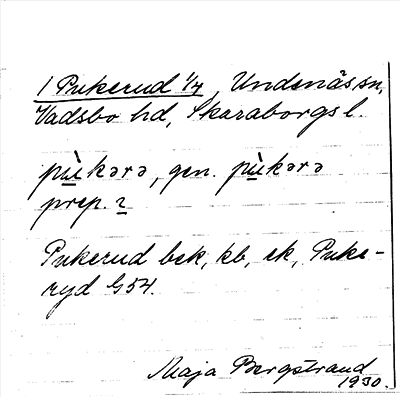 1 Pukerud 1/4, Undenäs sn,
Vadsbo hd, Skaraborgs l.
pùkərə, gen. pùkərə
prep. 2
Pukerud bek, kb, ek, Puke-
ryd G54.
Maja Bergstrand
1930.